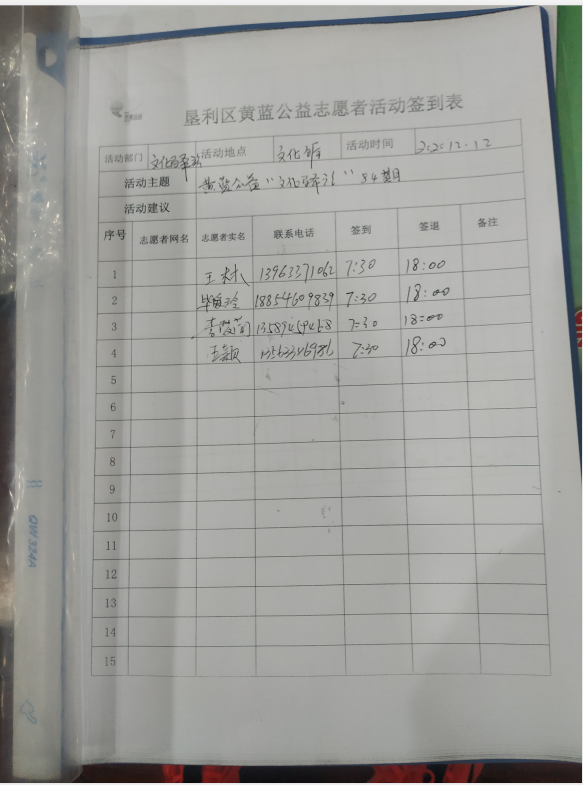 垦利区黄蓝公益志愿者活动签到表
活动部门 活动地点 文化 活动时间 2020.12.12
活动主题 黄蓝公益"文化 " 84期
活动建议
序号 志愿者网名 志愿者实名 联系电话 签到 签退 备注
1 王 13963371062 7:30 18:00
2 18854609839 7:30 18:00
3 李 7:30 18:00
4 王颖 7:30 18:00
5
6
7
8
9
10
11
12
13
14
15